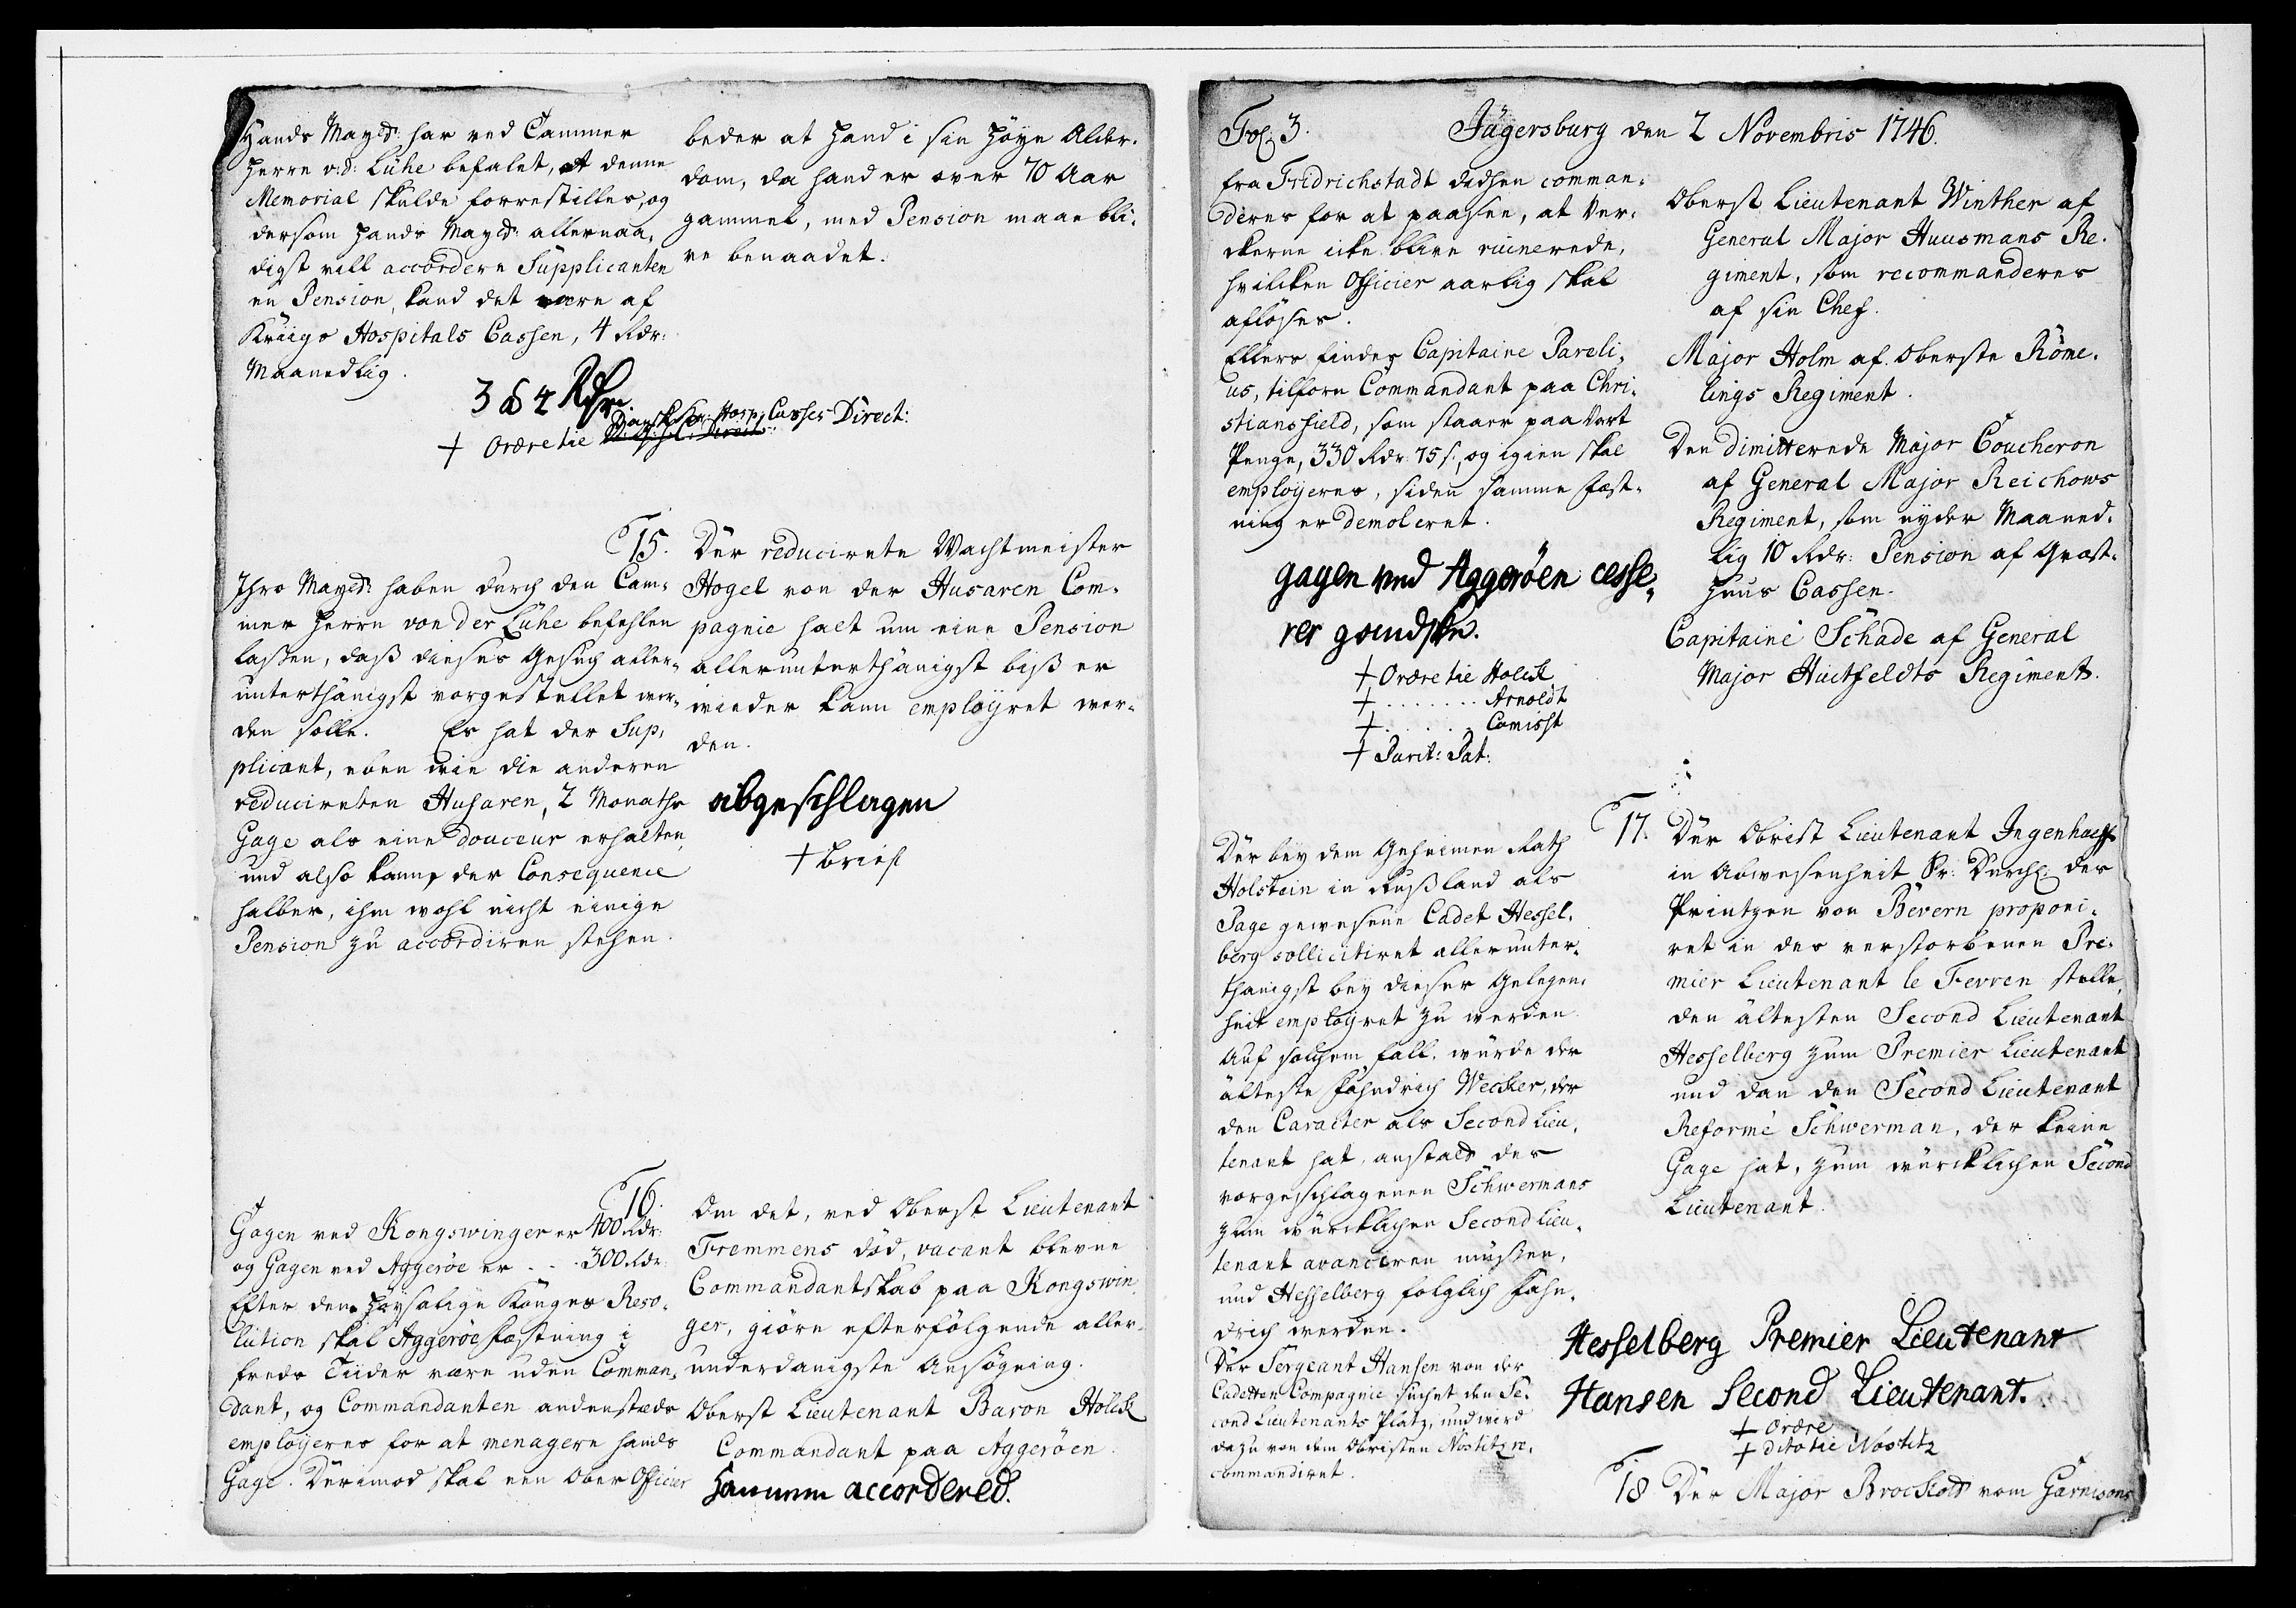 Hands Mayt: har ved Cammer
Herre v: d: Lühe befalet, at denne
Memorial skulde forrestilles, og
dersom Hands Mayt: allernaa-
digst vill accordere Supplicanten
en Pension, kand det være af
Kriigs Hospitals Cassen, 4 Rdr:
Maanedlig.
beder at hand i sin høye Alder-
dom, da hand er over 70 Aar
gammel, med Pension maae bli-
ve benaadet.
3 à 4 Rdr.
Dansk Kr: Hosp: Casses Direct:
+ Ordre tie
15.
Ihro Mayt: haben durch den Cam-
mer Herrn von der Lühe befehlen
laßen, daß dieses Gesuch aller-
unterthänigst vorgestellet wer-
den solle. Es hat der Sup-
plicant, eben wie die anderen
reducireten Husaren, 2 Monaths
Gage als eine douceur erhalten,
und also kann, der Consequence
halber, ihm wohl nicht einige
Pension zu accordiren stehen.
Der reducirete Wachtmeister
Hogel von der Husaren Com-
pagnie halt um eine Pension
allerunterthänigst biß er
wieder kann employret wer-
den.
abgeschlagen
+ brief
16.
Gagen ved Kongswinger er 400 Rdr:
og Gagen ved Aggerøe er . . . 300 Rdr:
Efter den Høysalige Konges Reso-
lution skal Aggerøe Fæstning i
freds Tiider være uden Comman-
dant, og Commandanten andenstæds
employeres for at menagere hands
Gage. Derimod skal een Ober Officier
Om det, ved Oberst Lieutenant
Fremmens død, vacant blevne
Commandantskab paa Kongswin-
ger, giøre efterfølgende aller-
underdanigste Ansøgning.
Oberst Lieutenant Baron Holck
Commandant paa Aggerøen.
Hannem accordered.
Fol: 3.
Jägersburg den 2 Novembris 1746.
fra Fridrichstadt didhen comman-
deres for at paasee, at Ver-
ckerne icke blive ruinerede,
hvilcken Officier aarlig skal
afløses.
Ellers findes Capitaine Pareli-
us, tilforn Commandant paa Chri-
stiansfield, som staaer paa Vart
Penge, 330 Rdr: 75 s:, og igien skal
employeres, siden samme Fæst-
ning er demoleret.
gagen ved Aggerøen cesse-
rer gandske.
+ Ordre tie Holck
+ . . . . . . . Arnoldt
+ . . . . . . Comisst
+ Parit: Pat:
Oberst Lieutenant Winther af
General Major Huusmans Re-
giment, som recommanderes
af sin Chef.
Major Holm af Oberste Röme-
lings Regiment.
Den dimitterede Major Coucheron
af General Major Reichows
Regiment, som nyder Maaned-
lig 10 Rdr: Pension af Qvæst-
huus Cassen.
Capitaine Schade af General
Major Huitfeldts Regiment.
17.
Der bey dem Geheimen Rath
Holstein in Rußland als
Page gewesene Cadet Hessel-
berg sollicitiret allerunter-
thänigst bey dieser Gelegen-
heit employret zu werden.
Auf solchem fall, würde der
älteste Fähndrich Wecker, der
den Caracter als Second Lieu-
tenant hat, anstatt des
vorgeschlagenen Schwermans
zum würcklichen Second Lieu-
tenant avanciren müßen,
und Hesselberg folglich Fähn-
drich werden.
Der Sergeant Hansen von der
Cadetten Compagnie suchet den Se-
cond Lieutenants Platz, und wird
dazu von dem Obristen Nostitz re-
commandiret.
Der Obrist Lieutenant Ingenhaeff
in Abwesenheit Sr: Durchl: des
Printzen von Bevern proponi-
ret in des verstorbenen Pre-
mier Lieutenant le Fevren stelle,
den ältesten Second Lieutenant
Hesselberg zum Premier Lieutenant
und dan den Second Lieutenant
Reformé Schwerman, der keine
Gage hat, zum würcklichen Second
Lieutenant.
Hesselberg Premier Lieutenant
Hansen Second Lieutenant.
+ Ordre
+ dito tie Nostitz
18 Der Major Brockdorf vom Garnisons